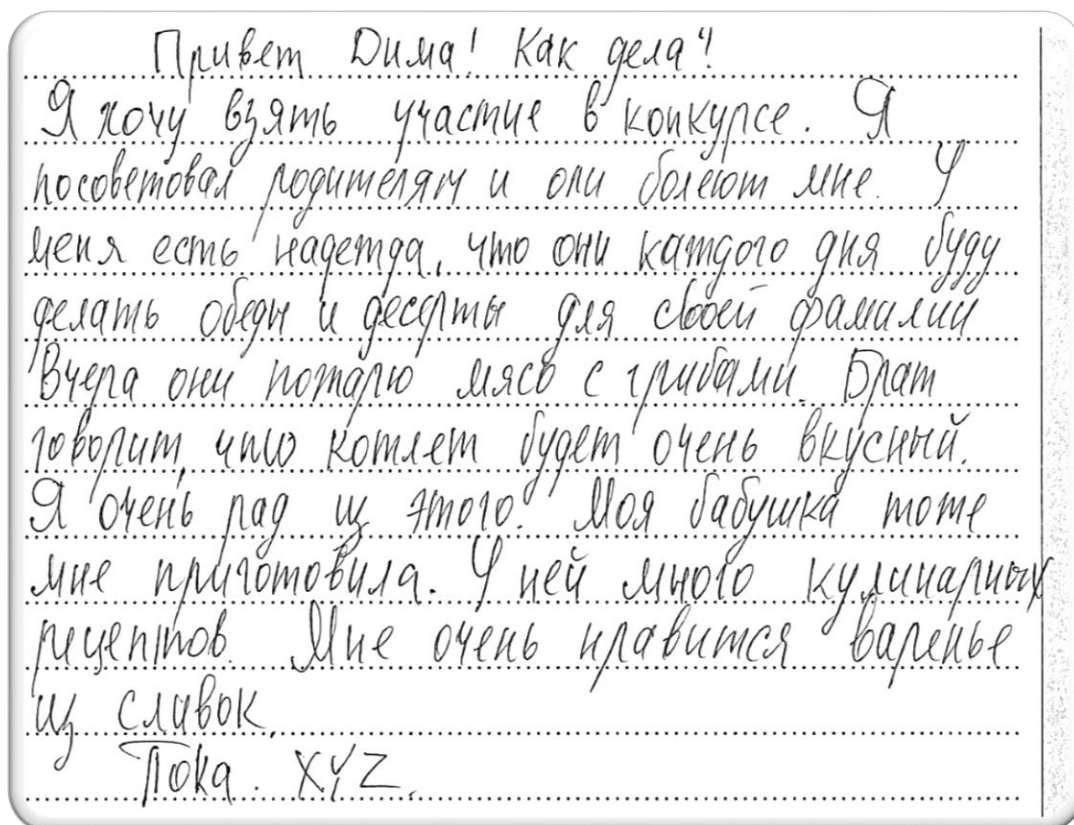 Привет Дима! Как дела?!
Я хочу взять участие в конкурсе. Я
посоветовал родителям и они болеют мне. У
меня есть надежда, что они каждого дня буду
делать обеды и десерты для своей фамилии
Вчера они пожарю мясо с грибами. Брат
говорит, что котлет будет очень вкусный.
Я очень рад из этого. Моя бабушка тоже
мне приготовила. У ней много кулинарных
рецептов. Мне очень нравится варенье
из сливок.
Пока. XYZ.